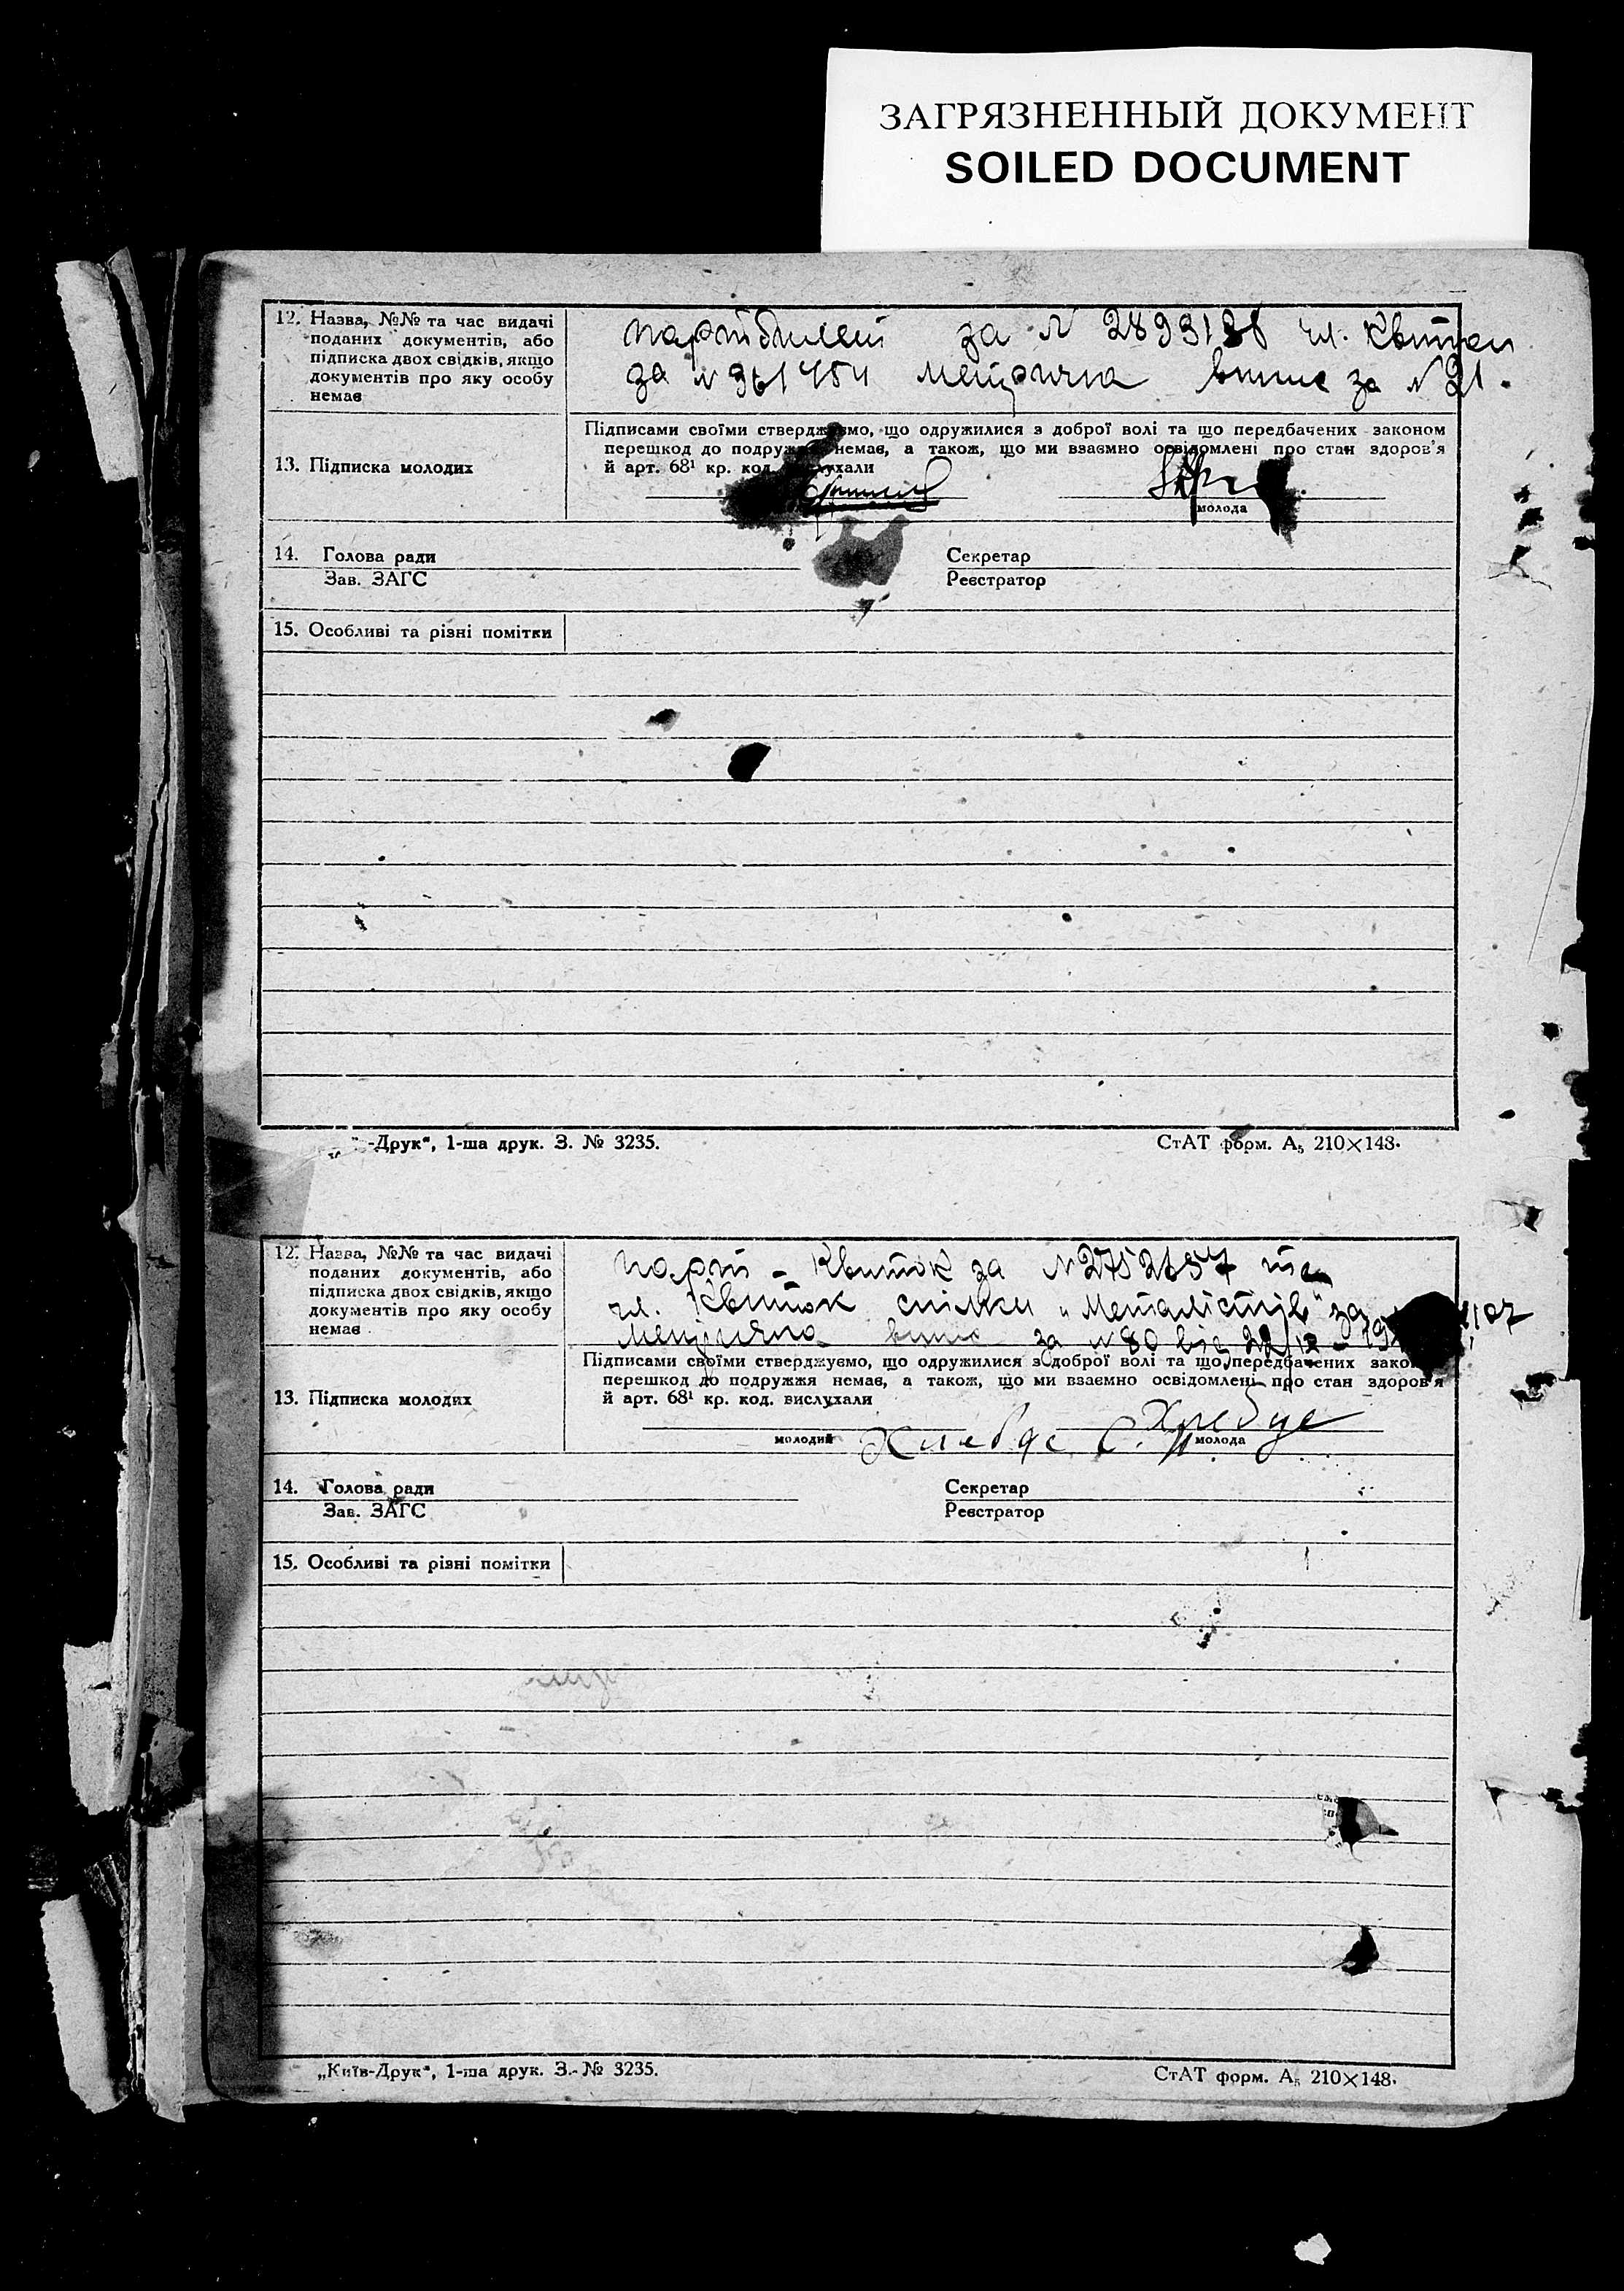 ЗАГРЯЗНЕННЫЙ ДОКУМЕНТ
SOILED DOCUMENT
12. Назва, №№ та час видачі
поданих документів, або
підписка двох свідків, якщо
документів про яку особу
немає
партбилет за N 2899138 чл. Квиток
за N 961484 метрична впис за N 21.
13. Підписка молодих
Підписами своїми стверджуємо, що одружилися з доброї волі та що передбачених законом
перешкод до подружжя немає, а також, що ми взаємно освідомлені про стан здоров'я
й арт. 68¹ кр. код. вислухали
молода
14. Голова ради
Зав. ЗАГС
Секретар
Реєстратор
15. Особливі та різні помітки
-Друк", 1-ша друк. З. № 3235.
СтАТ форм. А₅ 210×148.
12. Назва, №№ та час видачі
поданих документів, або
підписка двох свідків, якщо
документів про яку особу
немає
парт - Квиток за N 2752657 та
чл. Квиток спілки "Металістів" за
Метрична впис за N 80 від 22/
13. Підписка молодих
Підписами своїми стверджуємо, що одружилися з доброї волі та що передбачених зако
перешкод до подружжя немає, а також, що ми взаємно освідомлені про стан здоров'я
й арт. 68¹ кр. код. вислухали
молодий
молода
14. Голова ради
Зав. ЗАГС
Секретар
Реєстратор
15. Особливі та різні помітки
„Київ-Друк", 1-ша друк. З. № 3235.
СтАТ форм. А₅ 210×148.